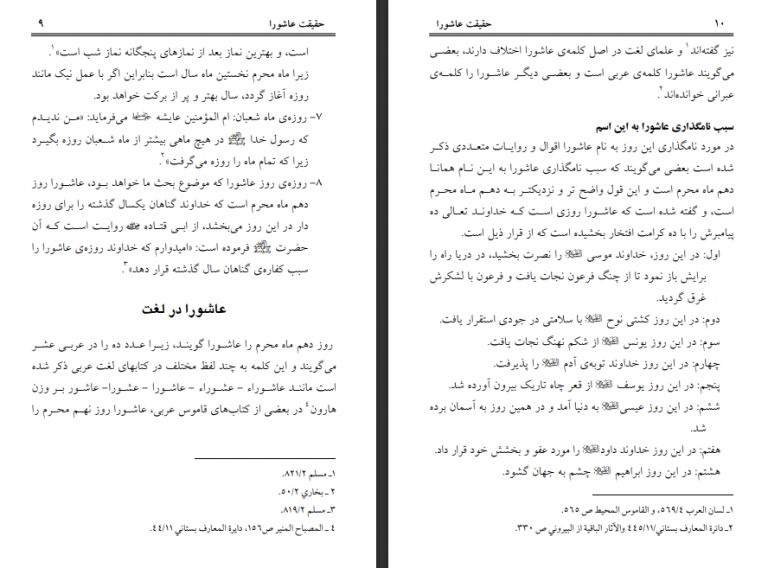 حقیقت عاشورا ۹
است، و بهترین نماز بعد از نمازهای پنجگانه نماز شب است»۱.
زیرا ماه محرم نخستین ماه سال است بنابراین اگر با عمل نیک مانند
روزه آغاز گردد، سال بهتر و پر از برکت خواهد بود.
۷- روزه‌ی ماه شعبان: ام المؤمنین عایشه می‌فرماید: «من ندیدم
که رسول خدا ﷺ در هیچ ماهی بیشتر از ماه شعبان روزه بگیرد
زیرا که تمام ماه را روزه می‌گرفت»۲.
۸- روزه‌ی روز عاشورا که موضوع بحث ما خواهد بود، عاشورا روز
دهم ماه محرم است که خداوند گناهان یکسال گذشته را برای روزه
دار در این روز می‌بخشد، از ابی قتاده روایت است که آن
حضرت ﷺ فرموده است: «امیدوارم که خداوند روزه‌ی عاشورا را
سبب کفاره‌ی گناهان سال گذشته قرار دهد»۳.
عاشورا در لغت
روز دهم ماه محرم را عاشورا گویند، زیرا عدد ده را در عربی عشر
می‌گویند و این کلمه به چند لفظ مختلف در کتابهای لغت عربی ذکر شده
است مانند عاشوراء - عشوراء - عاشورا - عشورا- عاشور بر وزن
هارون۴ در بعضی از کتاب‌های قاموس عربی، عاشورا روز نهم محرم را
۱ـ مسلم ۸۲۱/۲.
۲ ـ بخاري ۵۰/۲.
۳ـ مسلم ۸۱۹/۲.
۴ ـ المصباح المنیر ص۱۵۶، دایرة المعارف بستاني ۴۴/۱۱.
۱۰ حقیقت عاشورا
نیز گفته‌اند۱ و علمای لغت در اصل کلمه‌ی عاشورا اختلاف دارند، بعضی
می‌گویند عاشورا کلمه‌ی عربی است و بعضی دیگر عاشورا را کلمه‌ی
عبرانی خوانده‌اند۲.
سبب نامگذاری عاشورا به این اسم
در مورد نامگذاری این روز به نام عاشورا اقوال و روایات متعددی ذکر
شده است بعضی می‌گویند که سبب نامگذاری عاشورا به این نام همانا
دهم ماه محرم است و این قول واضح تر و نزدیکتر به دهم ماه محرم
است، و گفته شده است که عاشورا روزی است که خداوند تعالی ده
پیامبرش را با ده کرامت افتخار بخشیده است که از قرار ذیل است.
اول: در این روز، خداوند موسی را نصرت بخشید، در دریا راه را
برایش باز نمود تا از چنگ فرعون نجات یافت و فرعون با لشکرش
غرق گردید.
دوم: در این روز کشتی نوح با سلامتی در جودی استقرار یافت.
سوم: در این روز یونس از شکم نهنگ نجات یافت.
چهارم: در این روز خداوند توبه‌ی آدم را پذیرفت.
پنجم: در این روز یوسف از قعر چاه تاریک بیرون آورده شد.
ششم: در این روز عیسی به دنیا آمد و در همین روز به آسمان برده
شد.
هفتم: در این روز خداوند داود را مورد عفو و بخشش خود قرار داد.
هشتم: در این روز ابراهیم چشم به جهان گشود.
۱ـ لسان العرب ۵۶۹/۴، و القاموس المحیط ص ۵۶۵.
۲ـ دائرة المعارف بستاني/۴۴۵/۱۱ والآثار الباقية از البيروني ص ۳۳۰.